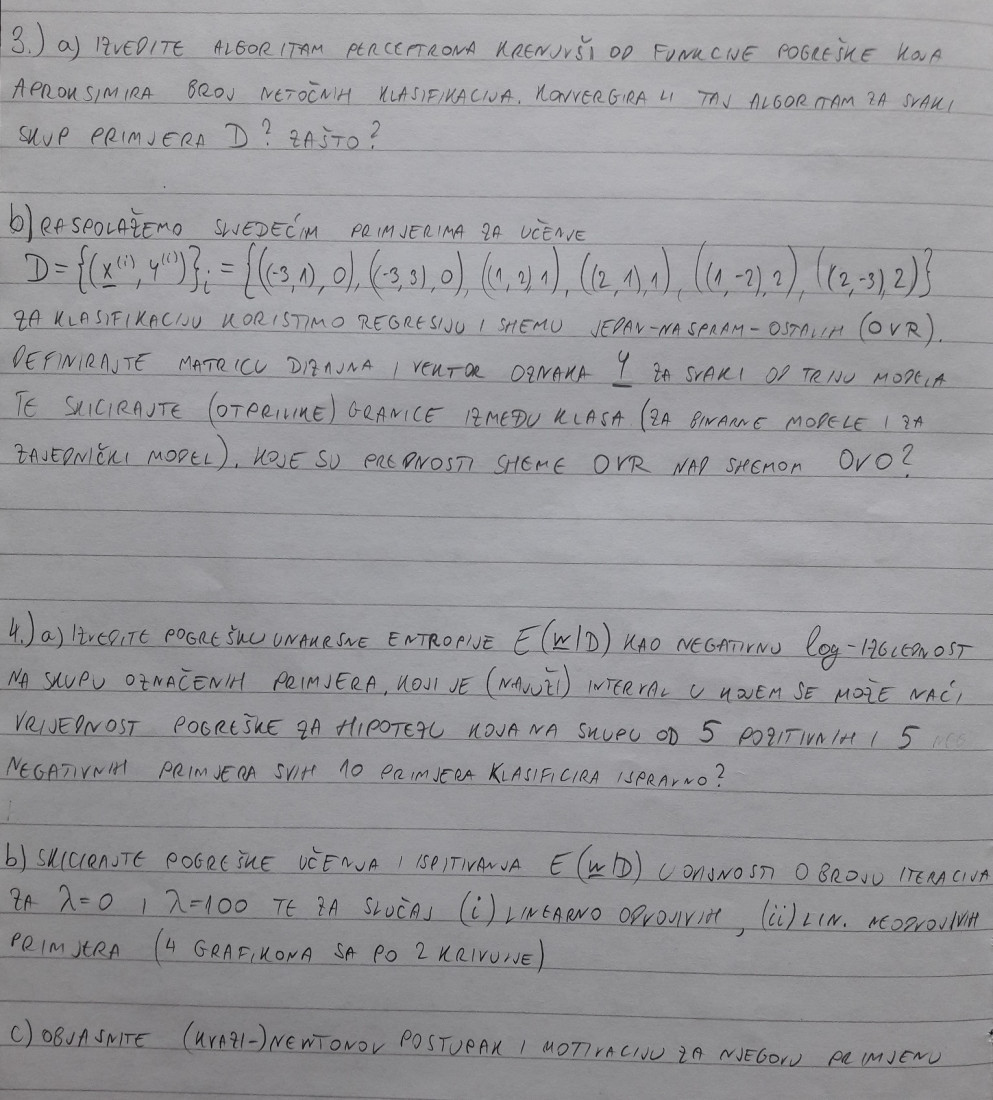 3.) a) IZVEDITE ALGORITAM PERCEPTRONA KRENUVŠI OD FUNKCIJE POGREŠKE KOJA
APROKSIMIRA BROJ NETOČNIH KLASIFIKACIJA. KONVERGIRA LI TAJ ALGORITAM ZA SVAKI
SKUP PRIMJERA D? ZAŠTO?
b) RASPOLAŽEMO SLJEDEĆIM PRIMJERIMA ZA UČENJE
D = {(x⁽ⁱ⁾, y⁽ⁱ⁾)}ᵢ = {((-3,1), 0), (-3,3), 0), ((1,2), 1), ((2,1), 1), ((1,-2), 2), ((2,-3), 2)}
ZA KLASIFIKACIJU KORISTIMO REGRESIJU I SHEMU JEDAN-NASPRAM-OSTALIH (OVR).
DEFINIRAJTE MATRICU DIZAJNA I VEKTOR OZNAKA y ZA SVAKI OD TRIJU MODELA
TE SKICIRAJTE (OTPRILIKE) GRANICE IZMEĐU KLASA (ZA BINARNE MODELE I ZA
ZAJEDNIČKI MODEL). KOJE SU PREDNOSTI SHEME OVR NAD SHEMOM OVO?
4.) a) IZVEDITE POGREŠKU UNAKRSNE ENTROPIJE E(w|D) KAO NEGATIVNU log-IZGLEDNOST
NA SKUPU OZNAČENIH PRIMJERA, KOJI JE (NAJUŽI) INTERVAL U KOJEM SE MOŽE NAĆI
VRIJEDNOST POGREŠKE ZA HIPOTEZU KOJA NA SKUPU OD 5 POZITIVNIH I 5
NEGATIVNIH PRIMJERA SVIH 10 PRIMJERA KLASIFICIRA ISPRAVNO?
b) SKICIRAJTE POGREŠKE UČENJA I ISPITIVANJA E(w|D) U ODNOSTI O BROJU ITERACIJA
ZA λ=0 I λ=100 TE ZA SLUČAJ (i) LINEARNO ODVOJIVIH, (ii) LIN. NEODVOJIVIH
PRIMJERA (4 GRAFIKONA SA PO 2 KRIVULJE)
c) OBJASNITE (KVAZI-)NEWTONOV POSTUPAK I MOTIVACIJU ZA NJEGOVU PRIMJENU